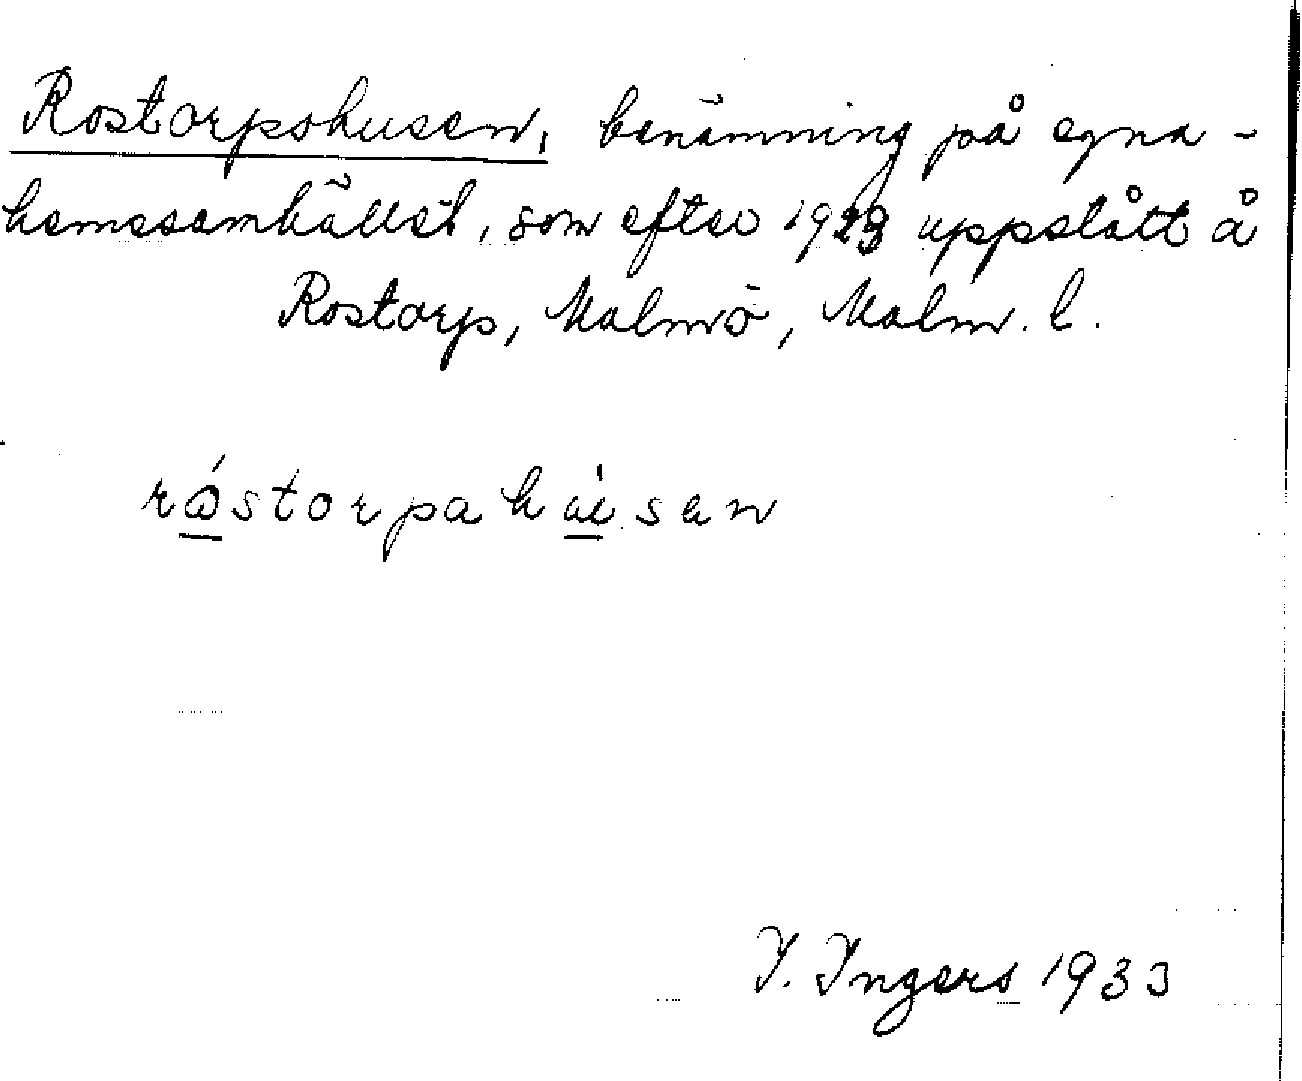 Rostorpshusen, benämning på egna-
hemssamhället, som efter 1923 uppstått å
Rostorp, Malmö, Malm. l.
róstorpahúsen
I. Ingers 1933